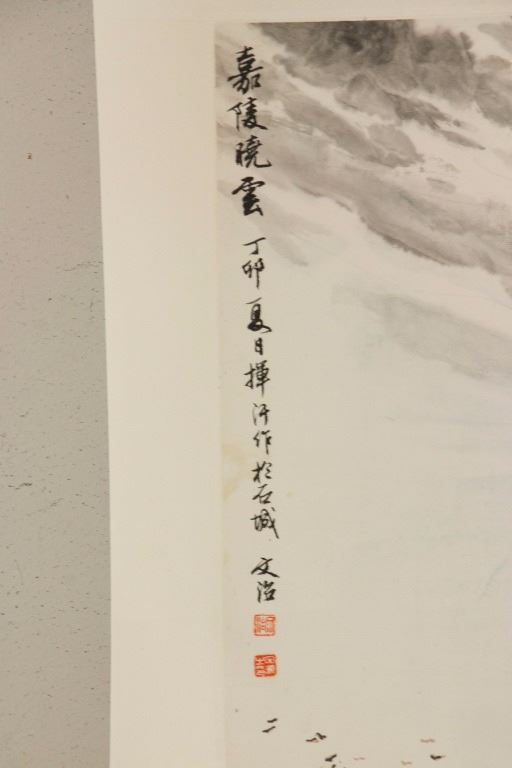 嘉陵曉雲 丁卯夏日揮汗作於石城 文治